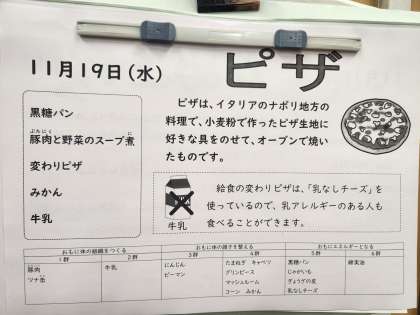 11月19日(水)
ピザ
黒糖パン
ぶたにく に
豚肉と野菜のスープ煮
変わりピザ
みかん
牛乳
ピザは、イタリアのナポリ地方の
料理で、小麦粉で作ったピザ生地に
好きな具をのせて、オーブンで焼い
たものです。
牛乳
給食の変わりピザは、「乳なしチーズ」を
使っているので、乳アレルギーのある人も
食べることができます。
おもに体の組織をつくる おもに体の調子を整える おもにエネルギーとなる
1群 2群 3群 4群 5群 6群
豚肉 牛乳 にんじん たまねぎ キャベツ 黒糖パン 綿実油
ツナ缶 ピーマン グリンピース じゃがいも
マッシュルーム ぎょうざの皮
コーン みかん 乳なしチーズ